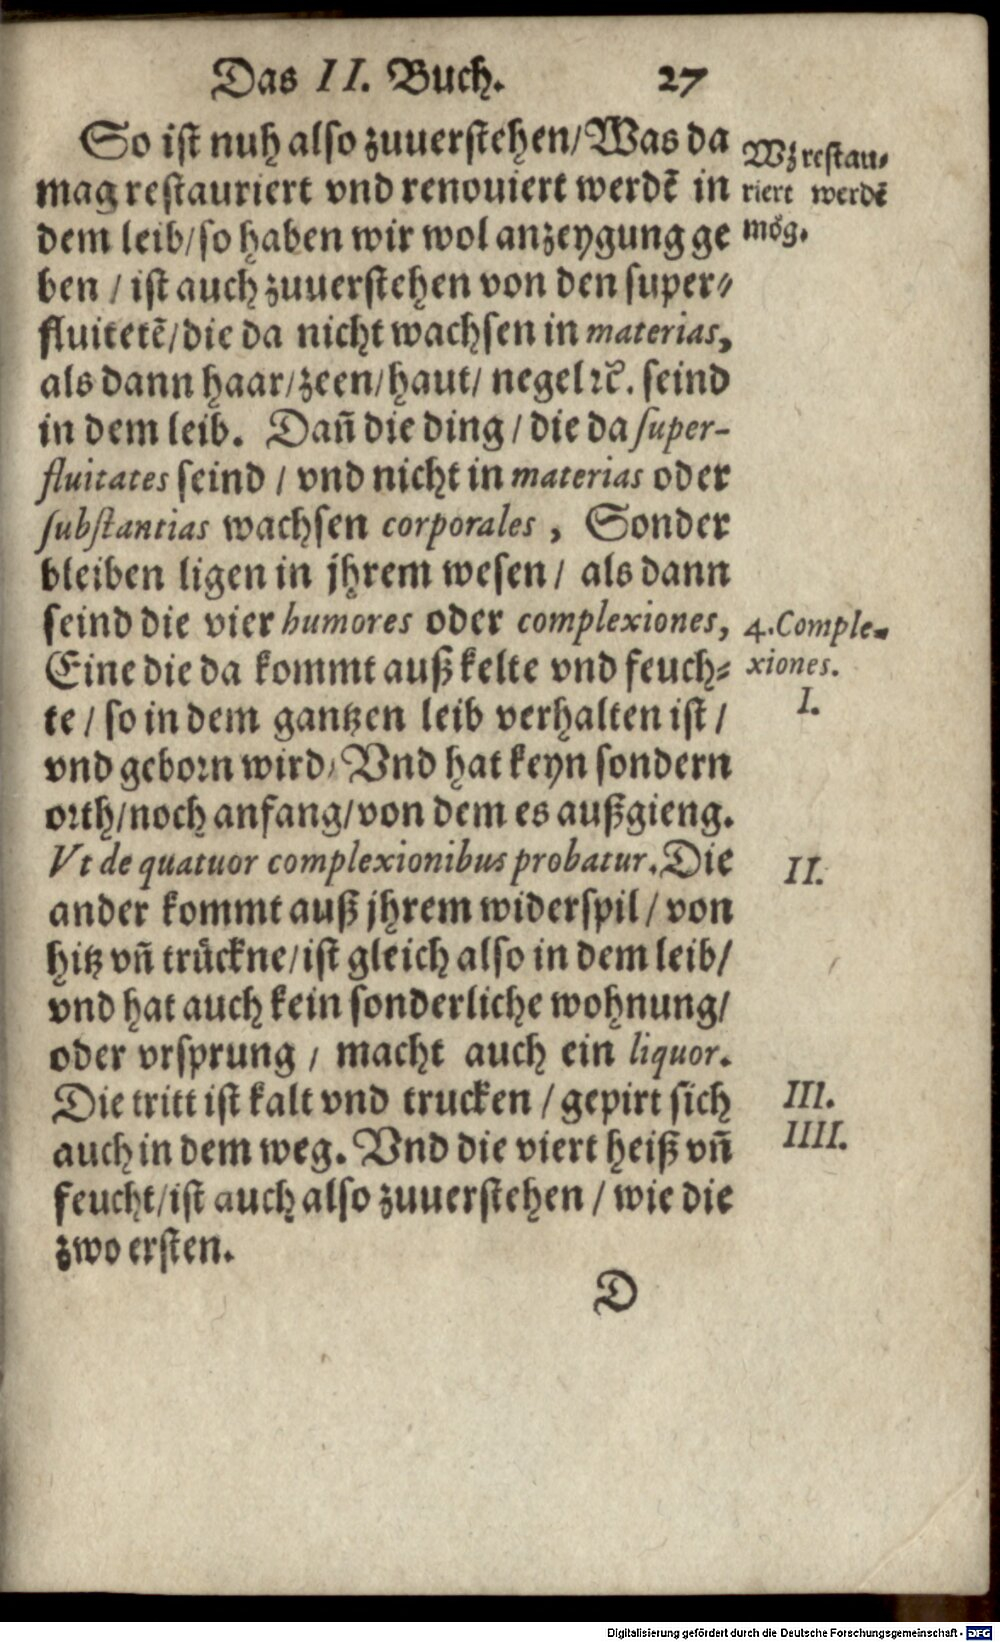 Das II. Buch. 27
So ist nuh also zuuerstehen/Was da
mag restauriert vnd renouiert werdẽ in
dem leib/so haben wir wol anzeygung ge
ben / ist auch zuuerstehen von den super-
fluitetẽ/die da nicht wachsen in materias,
als dann haar/zeen/haut/ negel ꝛc̃. seind
in dem leib. Dañ die ding / die da super-
fluitates seind / vnd nicht in materias oder
substantias wachsen corporales , Sonder
bleiben ligen in jhrem wesen / als dann
seind die vier humores oder complexiones,
Eine die da kommt auß kelte vnd feuch-
te / so in dem gantzen leib verhalten ist /
vnd geborn wird/ Vnd hat keyn sondern
orth/noch anfang/von dem es außgieng.
Vt de quatuor complexionibus probatur. Die
ander kommt auß jhrem widerspil / von
hitz vñ truͤckne/ist gleich also in dem leib/
vnd hat auch kein sonderliche wohnung/
oder vrsprung / macht auch ein liquor.
Die tritt ist kalt vnd trucken / gepirt sich
auch in dem weg. Vnd die viert heiß vñ
feucht/ist auch also zuuerstehen / wie die
zwo ersten.
D
Wz restau-
riert werdẽ
moͤg.
4. Comple-
xiones.
I.
II.
III.
IIII.
Digitalisierung gefördert durch die Deutsche Forschungsgemeinschaft - DFG